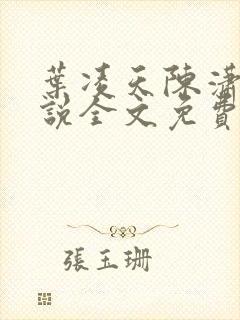 葉凌天陳瀟
說全文免費
張玉珊